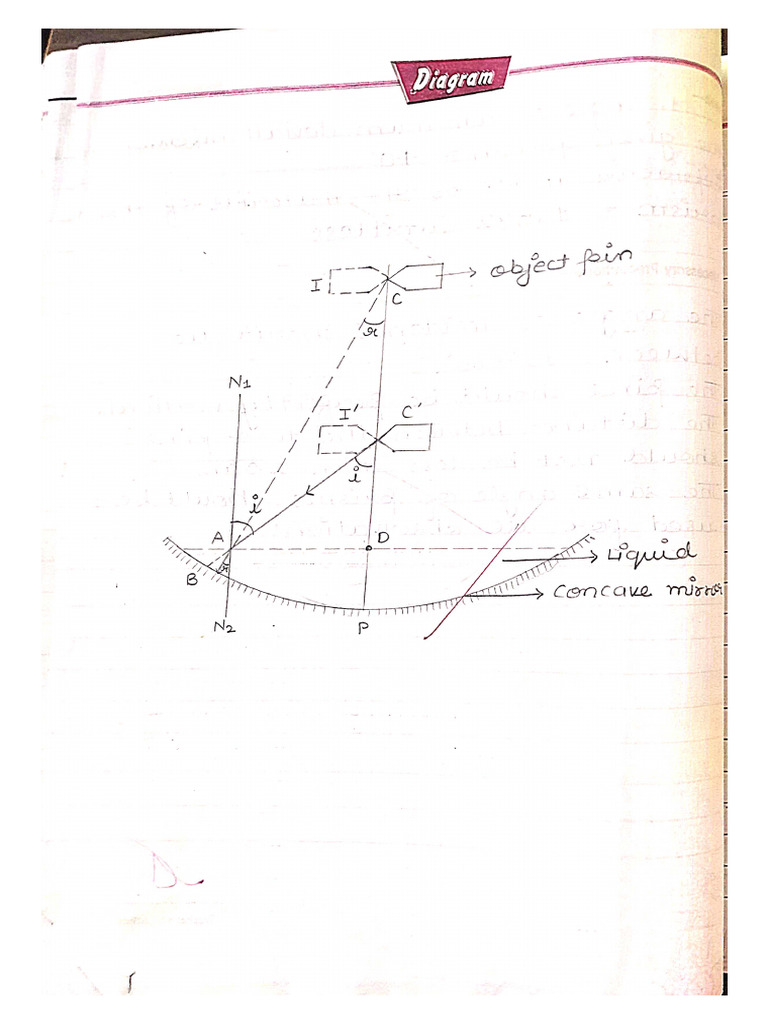 Diagram
I
object pin
C
r
N1
I'
C'
i
i
A
D
B
r
Liquid
concave mirror
N2
P